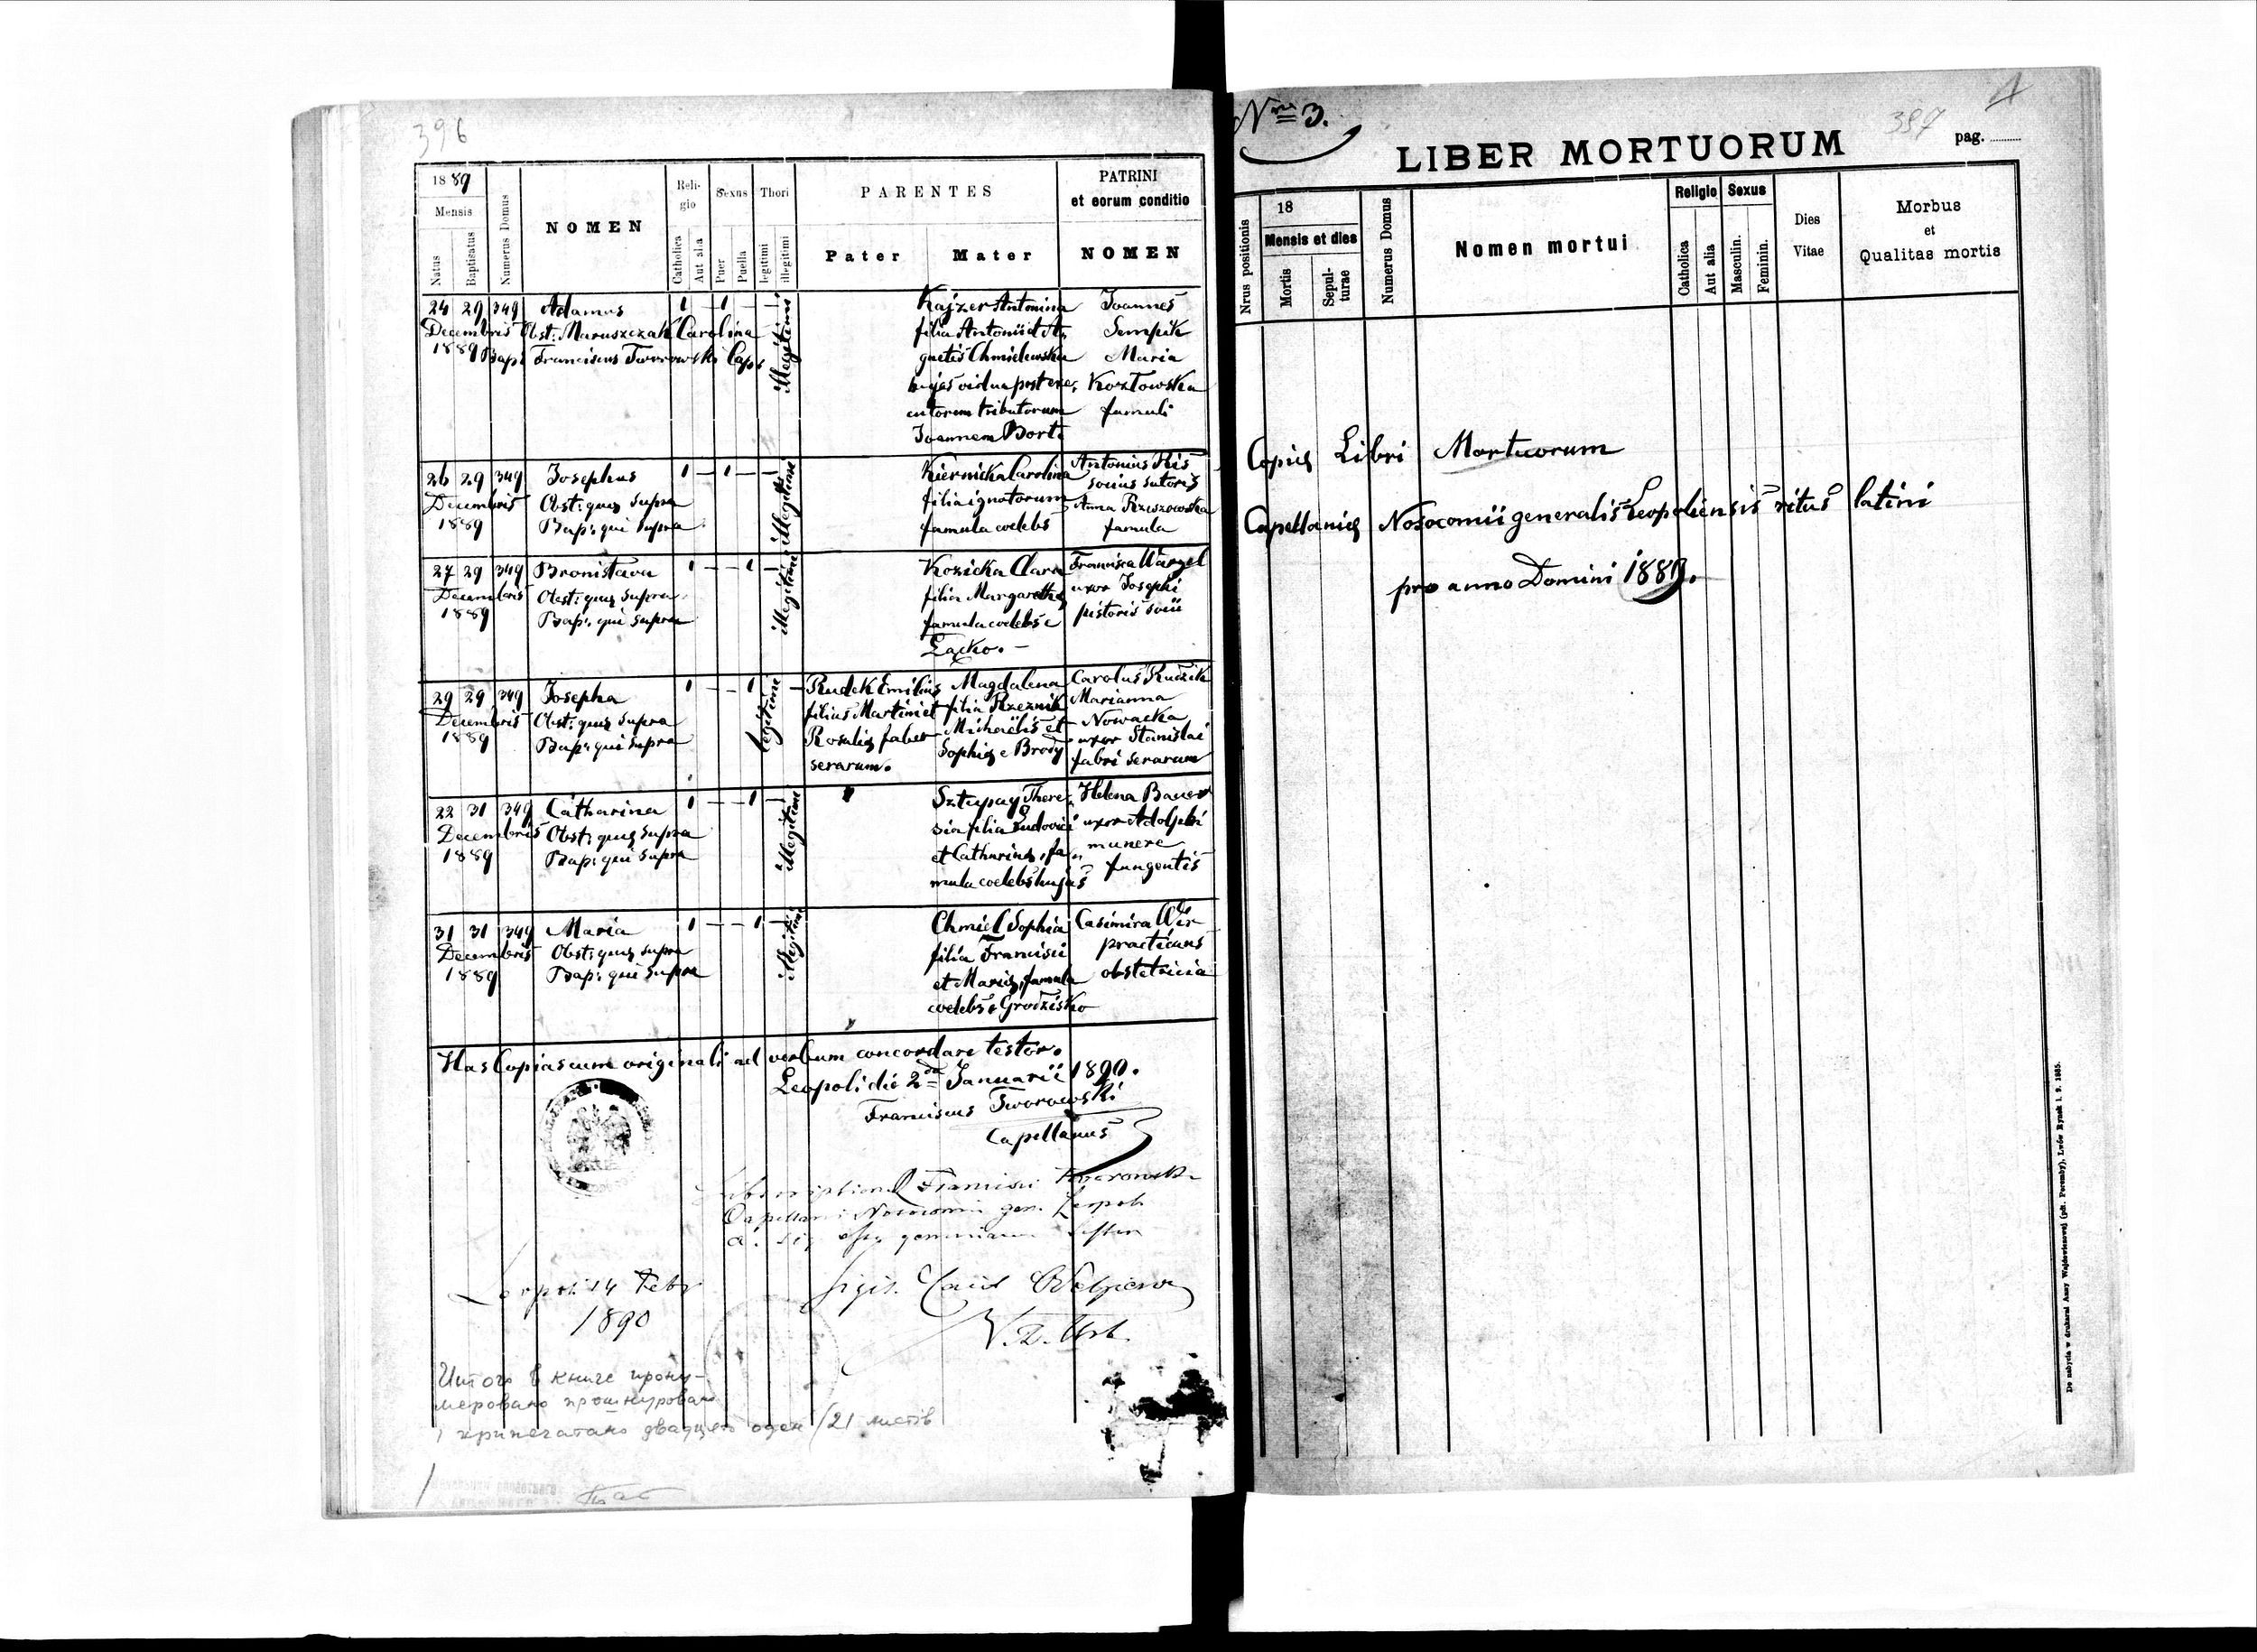 396
18 89
Mensis
Natus
Baptisatus
Numerus Domus
NOMEN
Reli-
gio
Catholica
Aut alia
Sexus
Puer
Puella
Thori
legitimi
illegitimi
PARENTES
Pater
Mater
PATRINI
et eorum conditio
NOMEN
24 29 349 Adamus 1 – 1 – –
Decembris Obst: Maruszczak Carolina
1889 Bap: Franciscus Tworowski Cap:
illegitimi
Kajzer Antonina
filia Antonii et A,
gnetis Chmielewska
hujas vidua post exe,
cutorem tributorum
Joannem Bort.
Joannes
Sempik
Maria
Kozłowska
famuli
26 29 349 Josephus 1 – 1 – –
Decembris Obst: quæ supra
1889 Bap: qui supra
illegitimi
Kiernicka Carolina
filia ignotorum
famula coelebs
Antonius Kis
socius sutoris
Anna Rzeszowska
famula
27 29 349 Bronislava 1 – – 1 –
Decembris Obst: quæ supra
1889 Bap: qui supra
illegitimi
Kozicka Clara
filia Margarethæ
famula coelebs e
Łącko. –
Francisca Wargel
uxor Josephi
pistoris socii
29 29 349 Josepha 1 – – 1 –
Decembris Obst: quæ supra
1889 Bap: qui supra
legitimi
Rudek Emilius
filius Martini et
Rosaliæ faber
serarum.
Magdalena
filia Rzeznik
Michaëlis et
Sophiæ e Brody
Carolus Ruczik
Marianna
Nowacka
uxor Stanislai
fabri serarum
22 31 349 Catharina 1 – – 1 –
Decembris Obst: quæ supra
1889 Bap: qui supra
illegitimi
Sztupay There,
sia filia Ludovici
et Catharinæ, fa,,
mula coelebs hujas
Helena Bauer
uxor Adolphi
munere
fungentis
31 31 349 Maria 1 – – 1 –
Decembris Obst: quæ supra
1889 Bap: qui supra
illegitimi
Chmiel Sophia
filia Francisci
et Mariæ, famula
coelebs e Grodzisko
Casimira
practicans
obstetricia
Has Copias cum originali ad verbum concordare testor.
Leopoli die 2da Januarii 1890.
Franciscus Tworowski
Capellanus
Subscriptionem Francisci Tworowski
Capellani Nosocomii gen. Leopol
Leopoli 14 Febr
1890
Итого в книге прону-
меровано прошнуровано
и припечатано двадцать один /21 листів
Nro 3.
397
LIBER MORTUORUM
pag.
Nrus positionis
18
Mensis et dies
Mortis
Sepul-
turae
Numerus Domus
Nomen mortui
Religio
Catholica
Aut alia
Sexus
Masculin.
Feminin.
Dies
Vitae
Morbus
et
Qualitas mortis
Copiæ Libri Mortuorum
Capellaniæ Nosocomii generalis Leopoliensis ritus latini
pro anno Domini 1889.